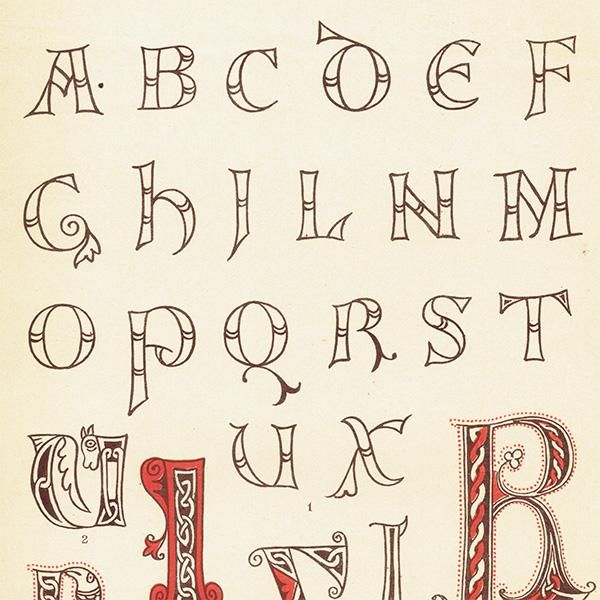 A B C D E F
G h I L N M
O P Q R S T
U X
1
U I R
2